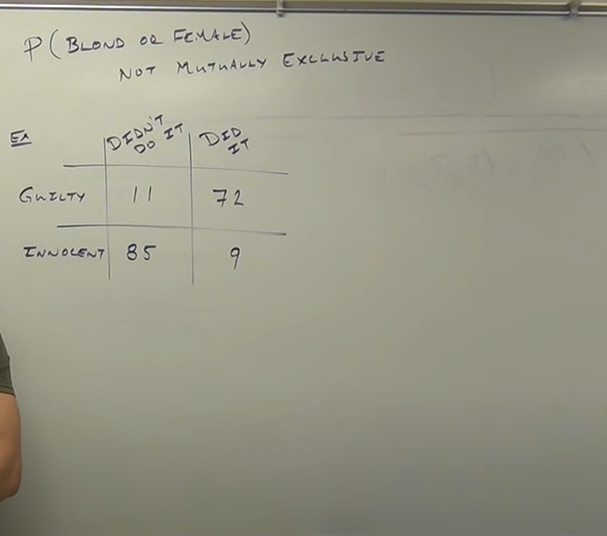 P(BLOND OR FEMALE)
NOT MUTUALLY EXCLUSIVE
Ex
DIDN'T DO IT
DID IT
GUILTY 11 72
INNOCENT 85 9